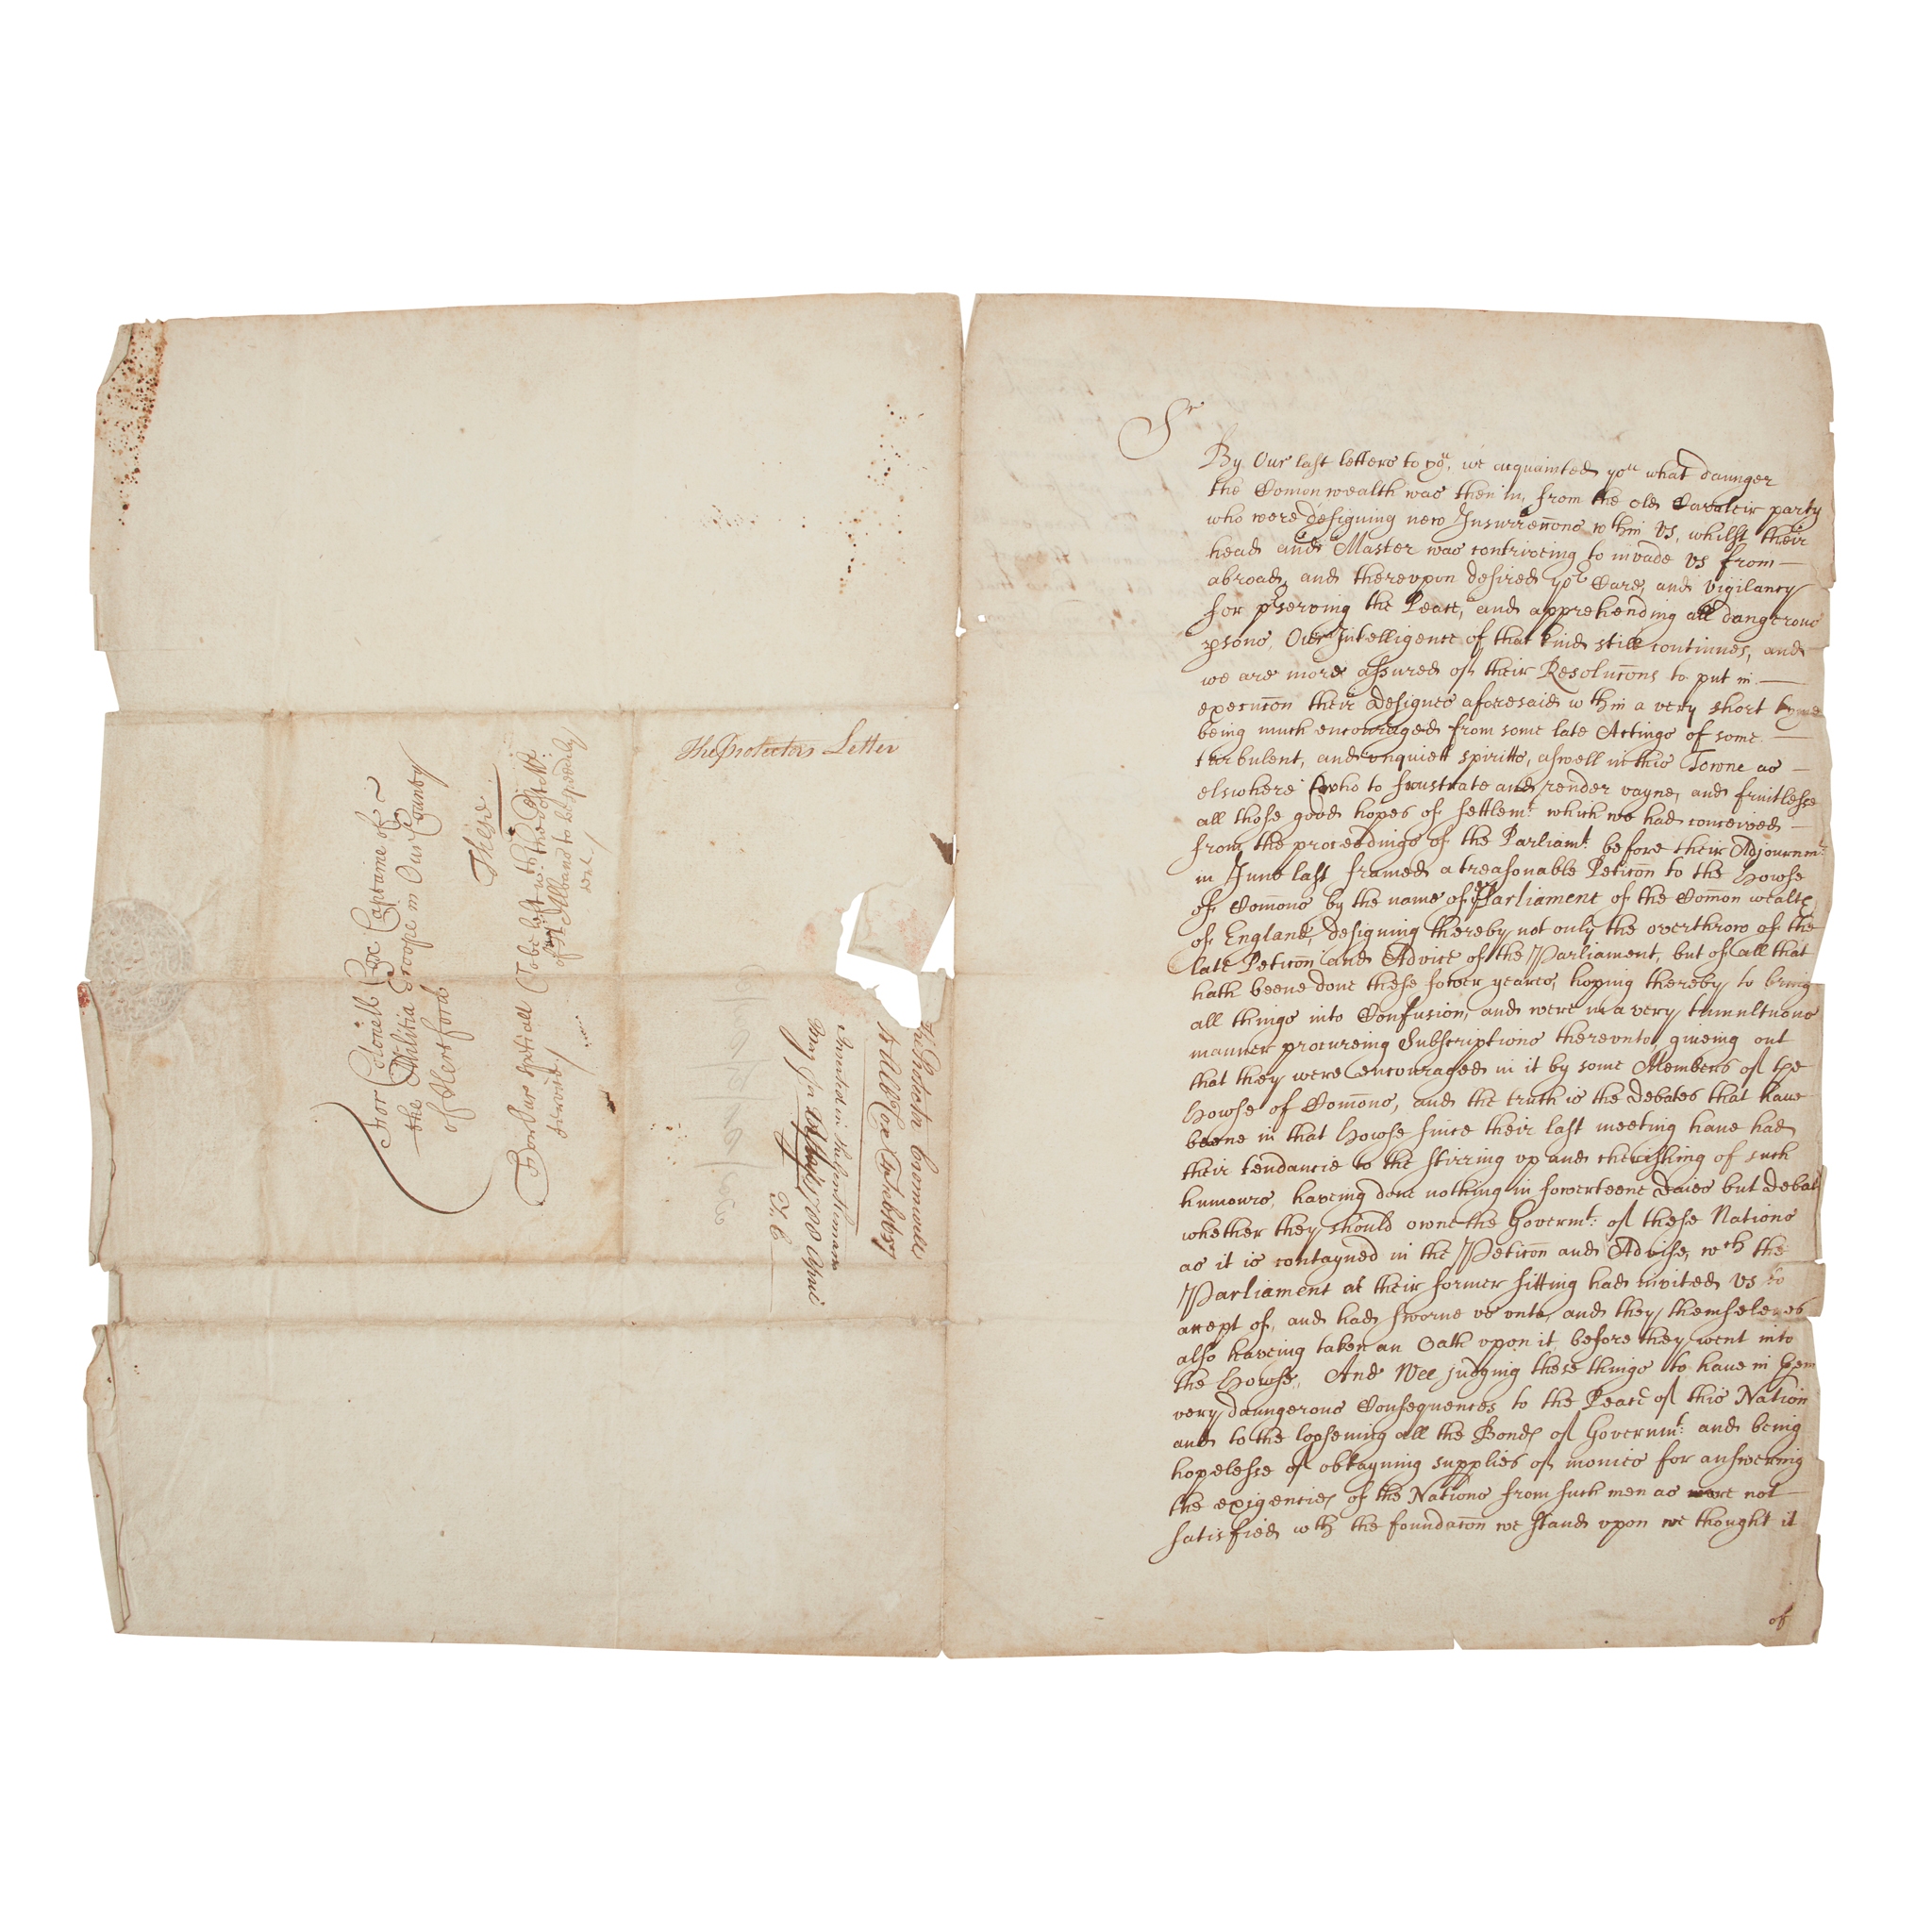 The Protectors Letter
For Colonell Cox Captaine of
the Militia Troope in Our County
of Hertford
These
For Our spetiall
service /
To be left wth the Postmr
of St Albans to be speedily
sent /
The Protector Cromwells
to Coll Cox Feb
Inserted in
May Jn 1788 April
T. C
Sr
By Our last letters to you, we acquainted you what daunger
the Comonwealth was then in, from the old Cavaleir party
who were designing new Insurreccons wthin vs, whilst their
head and Master was contriveing to invade vs from
abroad, and therevpon desired yor Care, and vigilancy
for pserving the Peace, and apprehending all dangerous
psons, Our Intelligence of that kind still continues, and
we are more assured of their Resolucons to put in
execucon their designes aforesaid wthin a very short tyme
being much encouraged from some late Actings of some
turbulent, and vnquiett spiritts, aswell in this Towne as
elswhere who to frustrate and render vayne, and fruitlesse
all those good hopes of settlemt which we had conceived
from the proceedings of the Parliamt: before their Adjournmt
in June last framed a treasonable Peticon to the Howse
of Comons by the name of ye Parliament of the Comon wealth
of England, designing thereby not only the overthrow of the
late Peticon and Advice of the Parliament, but of all that
hath beene done these fower yeares, hoping thereby to bring
all things into Confusion, and were in a very tumultuous
manner procureing Subscriptions therevnto, giueing out
that they were encouraged in it by some Members of the
Howse of Comons, and the truth is the debates that haue
beene in that Howse since their last meeting haue had
their tendancie to the stirring vp and cherishing of such
humours, haveing done nothing in fowerteene daies but debate
whether they should owne the Govermt: of these Nations
as it is contayned in the Peticon and Advise, wch the
Parliament at their former sitting had invited vs to
accept of, and had sworne vs vnto, and they themselves
also haveing taken an Oath vpon it before they went into
the Howse, And Wee judging these things to haue in them
very daungerous Consequences to the Peace of this Nation
and to the loosening all the Bonds of Governmt: and being
hopelesse of obtayning supplies of monies for answering
the exigencies of the Nations from such men as were not
satisfied wth the foundacon we stand vpon we thought it
of